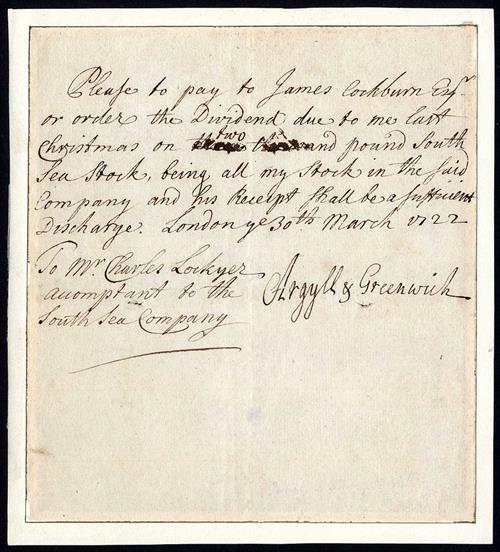 Please to pay to James Cockburn Esqr
or order the Dividend due to me last
Christmas on two thousand pound South
Sea Stock, being all my Stock in the said
Company and his Receipt shall be a sufficient
Discharge. London ye 30th March 1722
To Mr Charles Lockyer
Acomptant to the
South Sea Company
Argyll & Greenwich